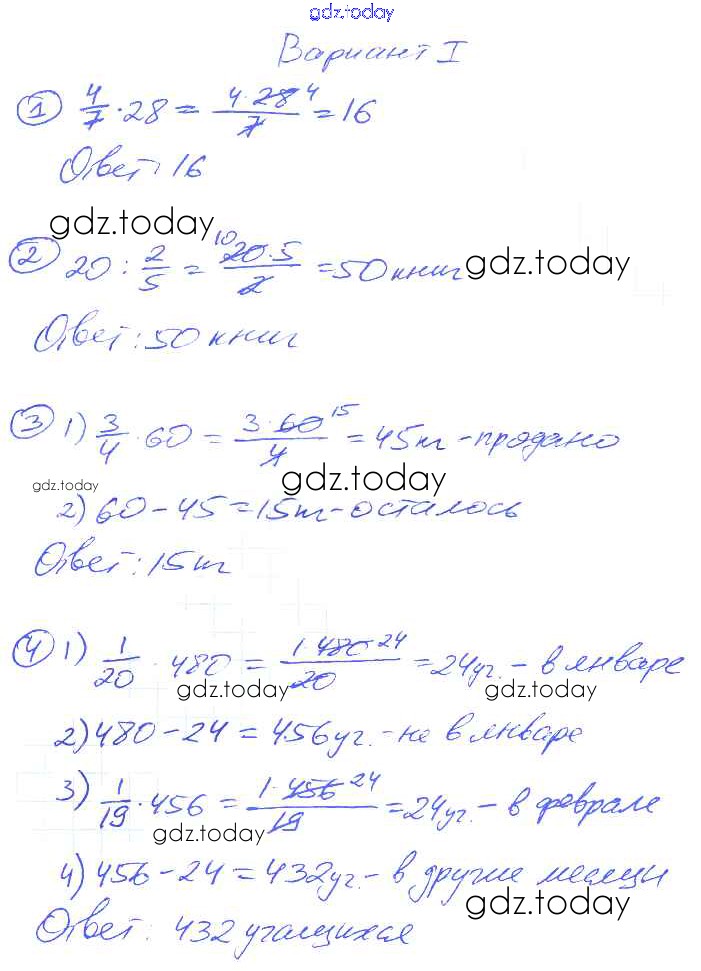 gdz.today
Вариант I
① 4/7 · 28 = 4·28 4/7 = 16
Ответ: 16
gdz.today
② 20 : 2/5 = 10 20·5/2 = 50 книг gdz.today
Ответ: 50 книг
③ 1) 3/4 · 60 = 3·60 15/4 = 45т - продано
gdz.today gdz.today
2) 60 - 45 = 15т - осталось
Ответ: 15т
④ 1) 1/20 · 480 = 1·480 24/20 = 24уч. - в январе
gdz.today gdz.today
2) 480 - 24 = 456уч. - не в январе
3) 1/19 · 456 = 1·456 24/19 = 24уч. - в феврале
gdz.today
4) 456 - 24 = 432уч. - в другие месяцы
gdz.today
Ответ: 432 учащихся